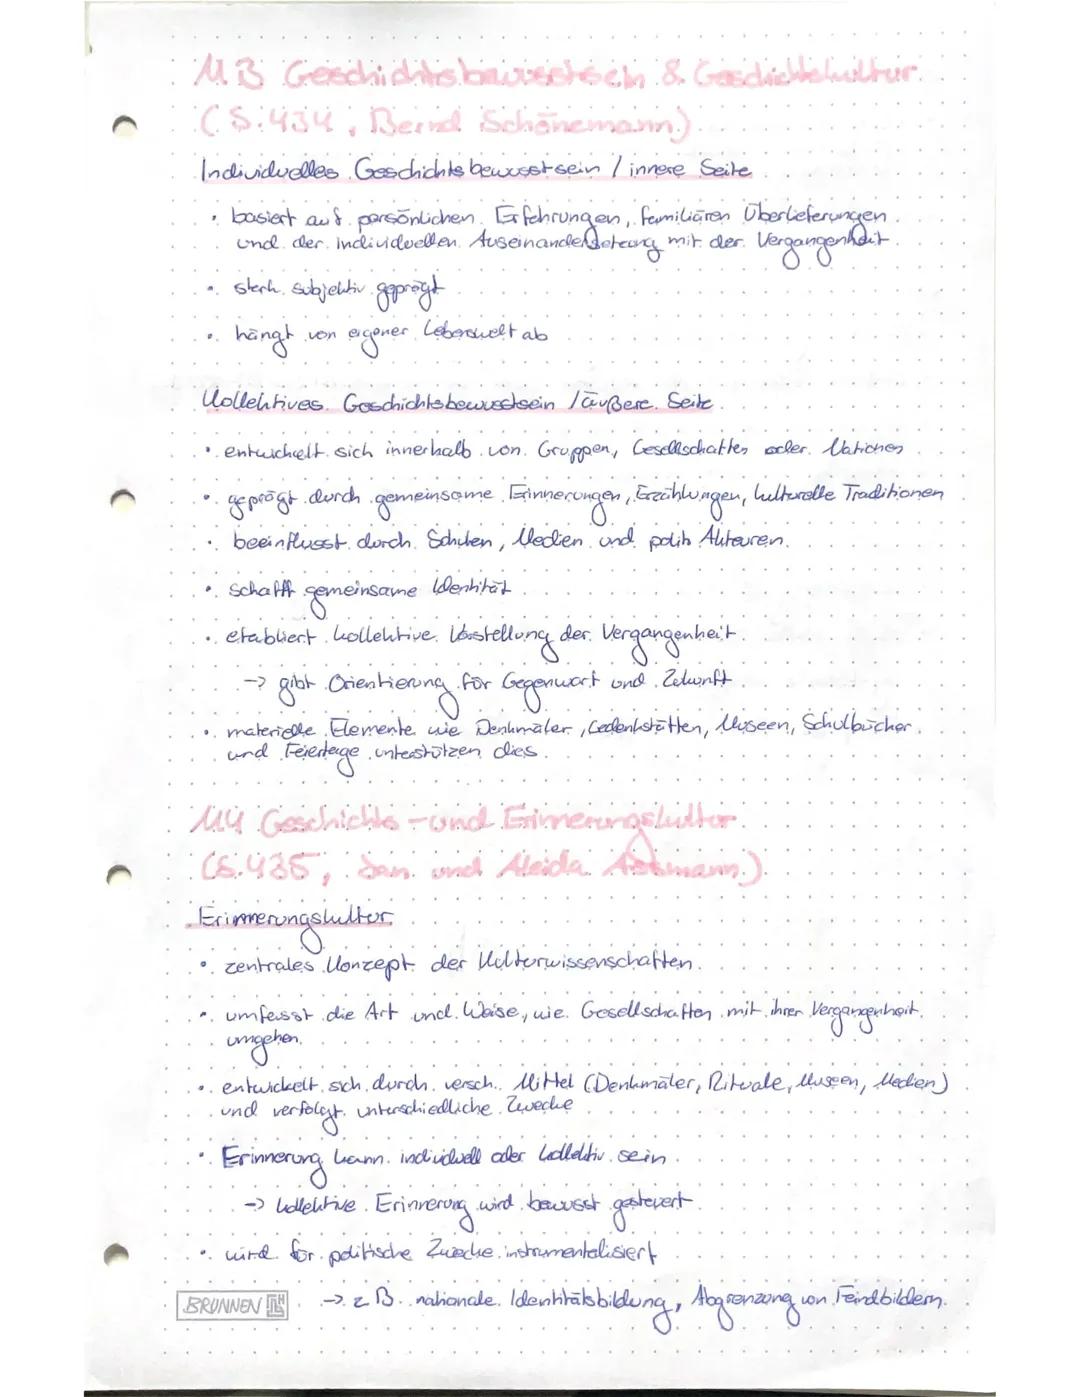 M3 Geschichtsbewusstsein & Geschichtskultur
(S.434, Bernd Schönemann)
Individuelles Geschichtsbewusstsein / innere Seite
• basiert auf persönlichen Erfahrungen, familiären Überlieferungen
und der individuellen Auseinandersetzung mit der Vergangenheit
• stark subjektiv geprägt
• hängt von eigener Lebenswelt ab
Kollektives Geschichtsbewusstsein / äußere Seite
• entwickelt sich innerhalb von Gruppen, Gesellschaften oder Nationen
• geprägt durch gemeinsame Erinnerungen, Erzählungen, kulturelle Traditionen
• beeinflusst durch Schulen, Medien und polit. Akteuren
• schafft gemeinsame Identität
• etabliert kollektive Vorstellung der Vergangenheit
-> gibt Orientierung für Gegenwart und Zukunft
• materielle Elemente wie Denkmäler, Gedenkstätten, Museen, Schulbücher
und Feiertage unterstützen dies
M4 Geschichts- und Erinnerungskultur
(S.435, Jan und Aleida Assmann)
Erinnerungskultur
• zentrales Konzept der Kulturwissenschaften
• umfasst die Art und Weise, wie Gesellschaften mit ihrer Vergangenheit
umgehen
• entwickelt sich durch versch. Mittel (Denkmäler, Rituale, Museen, Medien)
und verfolgt unterschiedliche Zwecke
• Erinnerung kann individuell oder kollektiv sein
-> kollektive Erinnerung wird bewusst gesteuert
• wird für politische Zwecke instrumentalisiert
BRUNNEN -> z B. nationale Identitätsbildung, Abgrenzung von Feindbildern